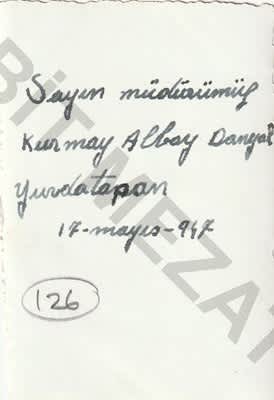 Sayın müdürümüz
Kurmay Albay Danyal
Yurdatapan
17-mayıs-947
126
BİT MEZAT